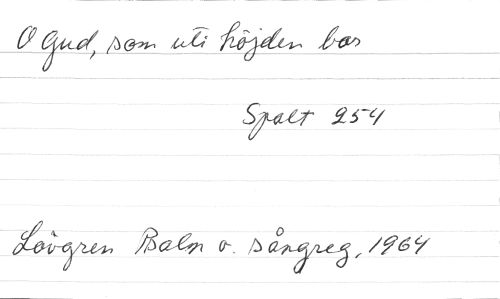 O Gud, som uti höjden bor
Spalt 254
Lövgren Psalm o. sångreg, 1964